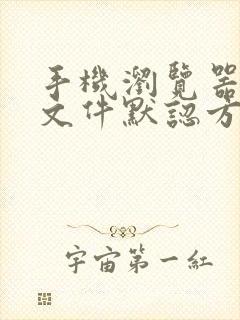 手機瀏覽器
文件默認方
宇宙第一紅